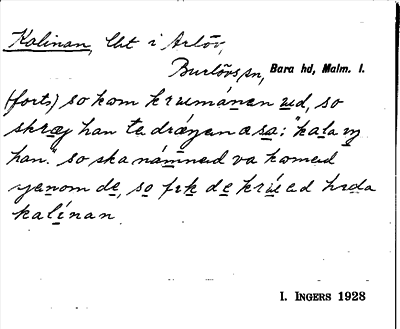 Kalinan, lht i Arlöv,
Burlövs sn, Bara hd, Malm. l.
(forts) so kom krumánen ud, so
skræj han te drǽyen a sa: "kala
han." so ska námned va komed
yenom de, so fek de krú ed heda
kalínan.
I. INGERS 1928